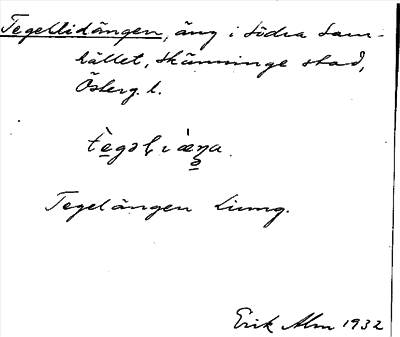 Tegellidängen, äng i södra sam-
hället, Skänninge stad,
Österg. l.
Tegelängen Ljung.
Erik Alm 1932